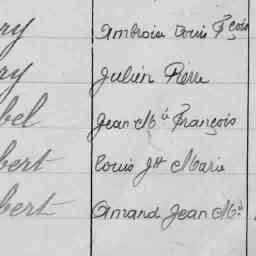 ry Ambroise Louis Fçois
ry Julien Pierre
bel Jean Mie François
bert Louis Jh Marie
bert Amand Jean Mie